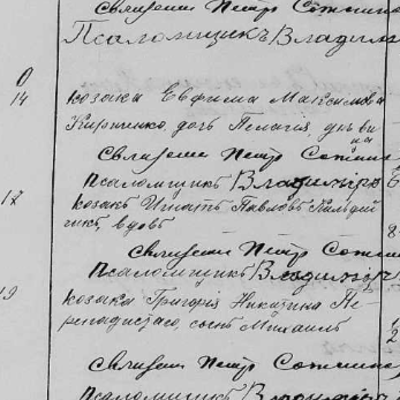 Священн Петръ Сотнико
Псаломщикъ Владим
0
14
козака Евфима Максимова
Кириченко, дочь Пелагія, дѣви
ца
Священн Петръ Сотник
Псаломщикъ Владиміръ
17
козакъ Игнатъ Павловъ
вдовъ
8
Священн Петръ Сотни
Псаломщикъ Владимір
19
козака Григорія Никитина Пе-
сынъ Михаилъ
1
2
Священн Петръ Сотнико
Псаломщикъ Владимір